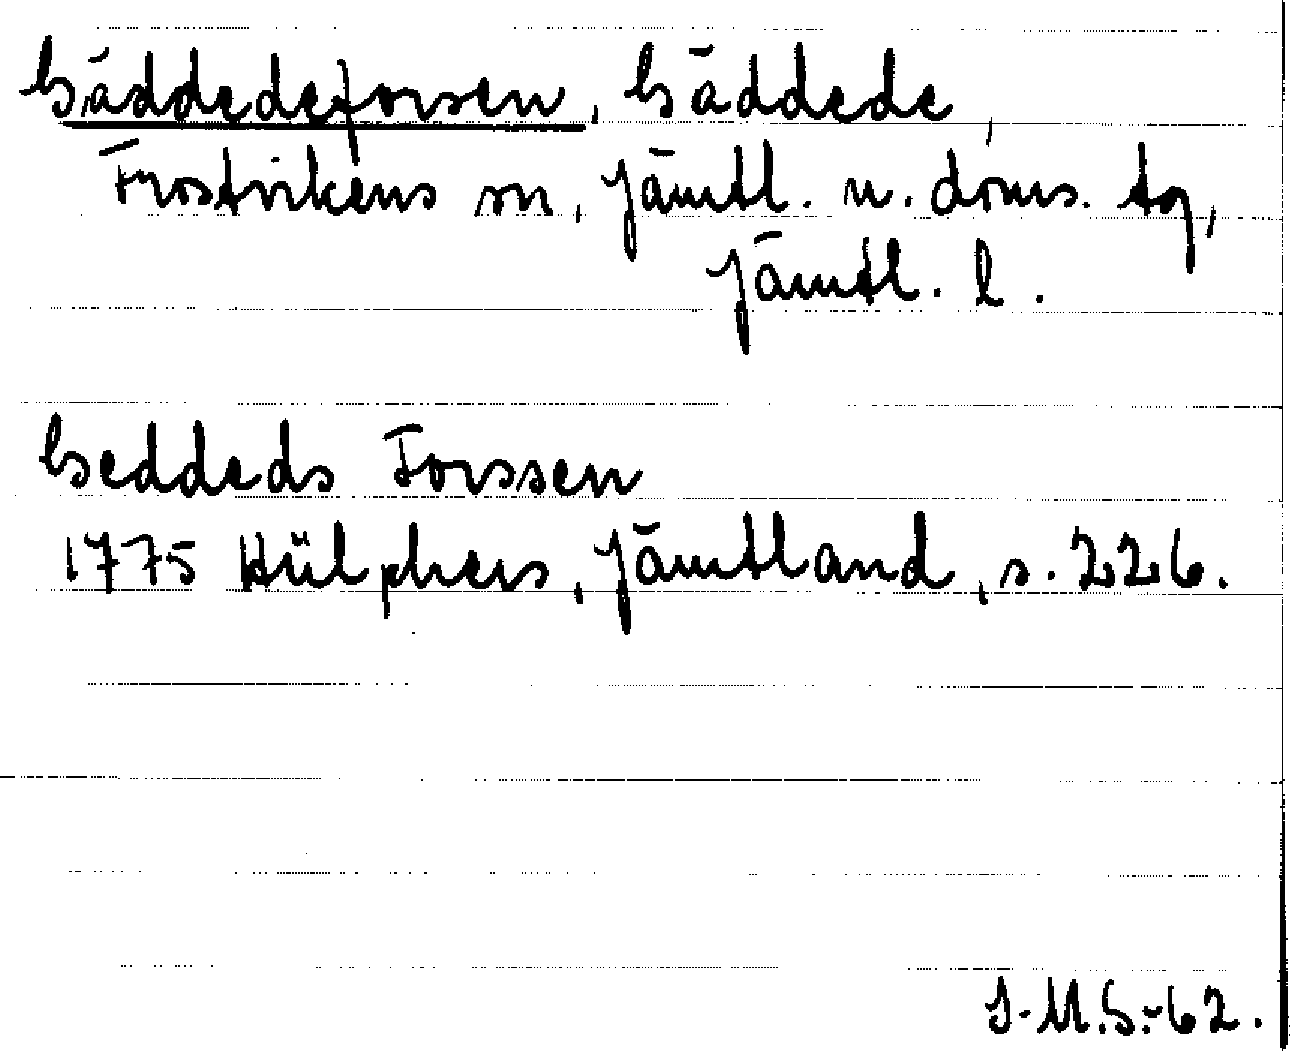 Gäddedeforsen, Gäddede,
Frostvikens sn, Jämtl. n. doms. tg,
Jämtl. l.
Geddeds Forssen
1775 Hülphers, Jämtland, s. 226.
I-M.S.-62.